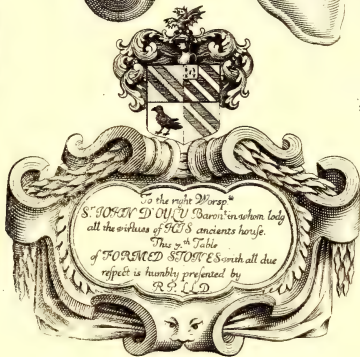 To the right Worsp.ll
S.r JOHN D'OYLY Baron.t in whom lodg
all the virtues of HIS ancients house.
This 7.th Table
of FORMED STONES with all due
respect is humbly presented by
R P. LLD